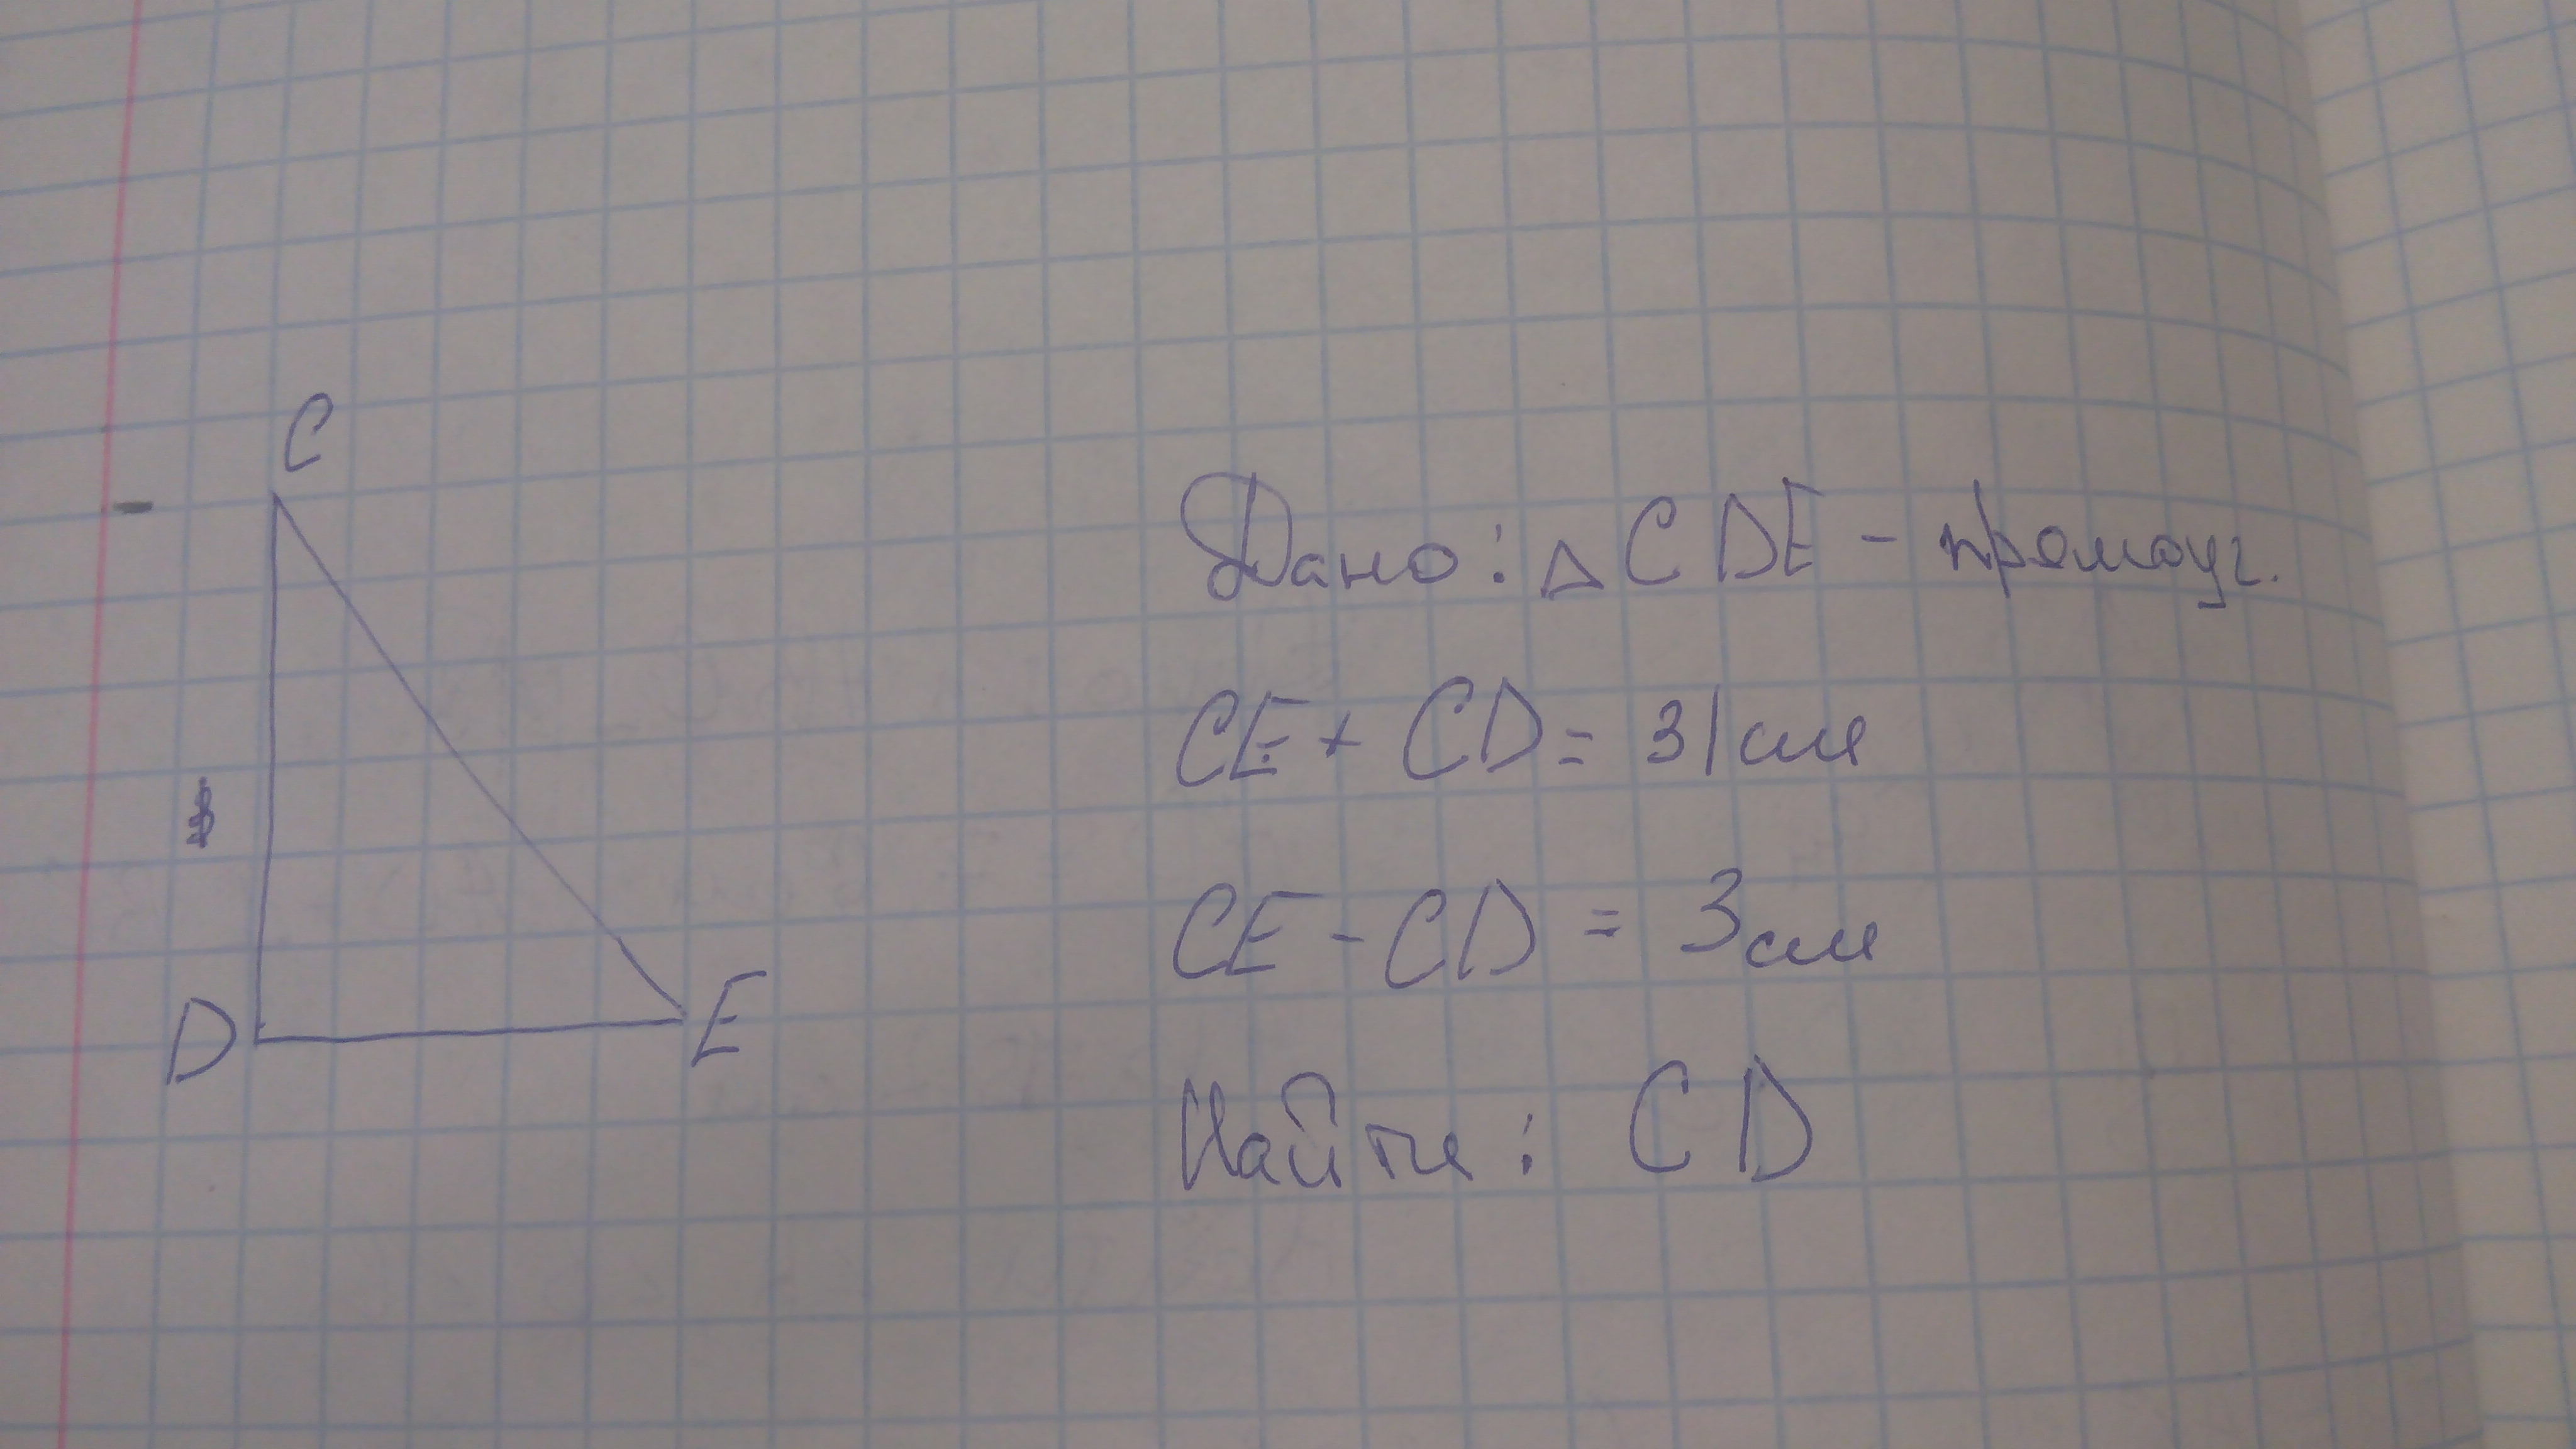 C
D
E
Дано: △ CDE - прямоуг.
CE + CD = 31 см
CE - CD = 3 см
Найти: CD